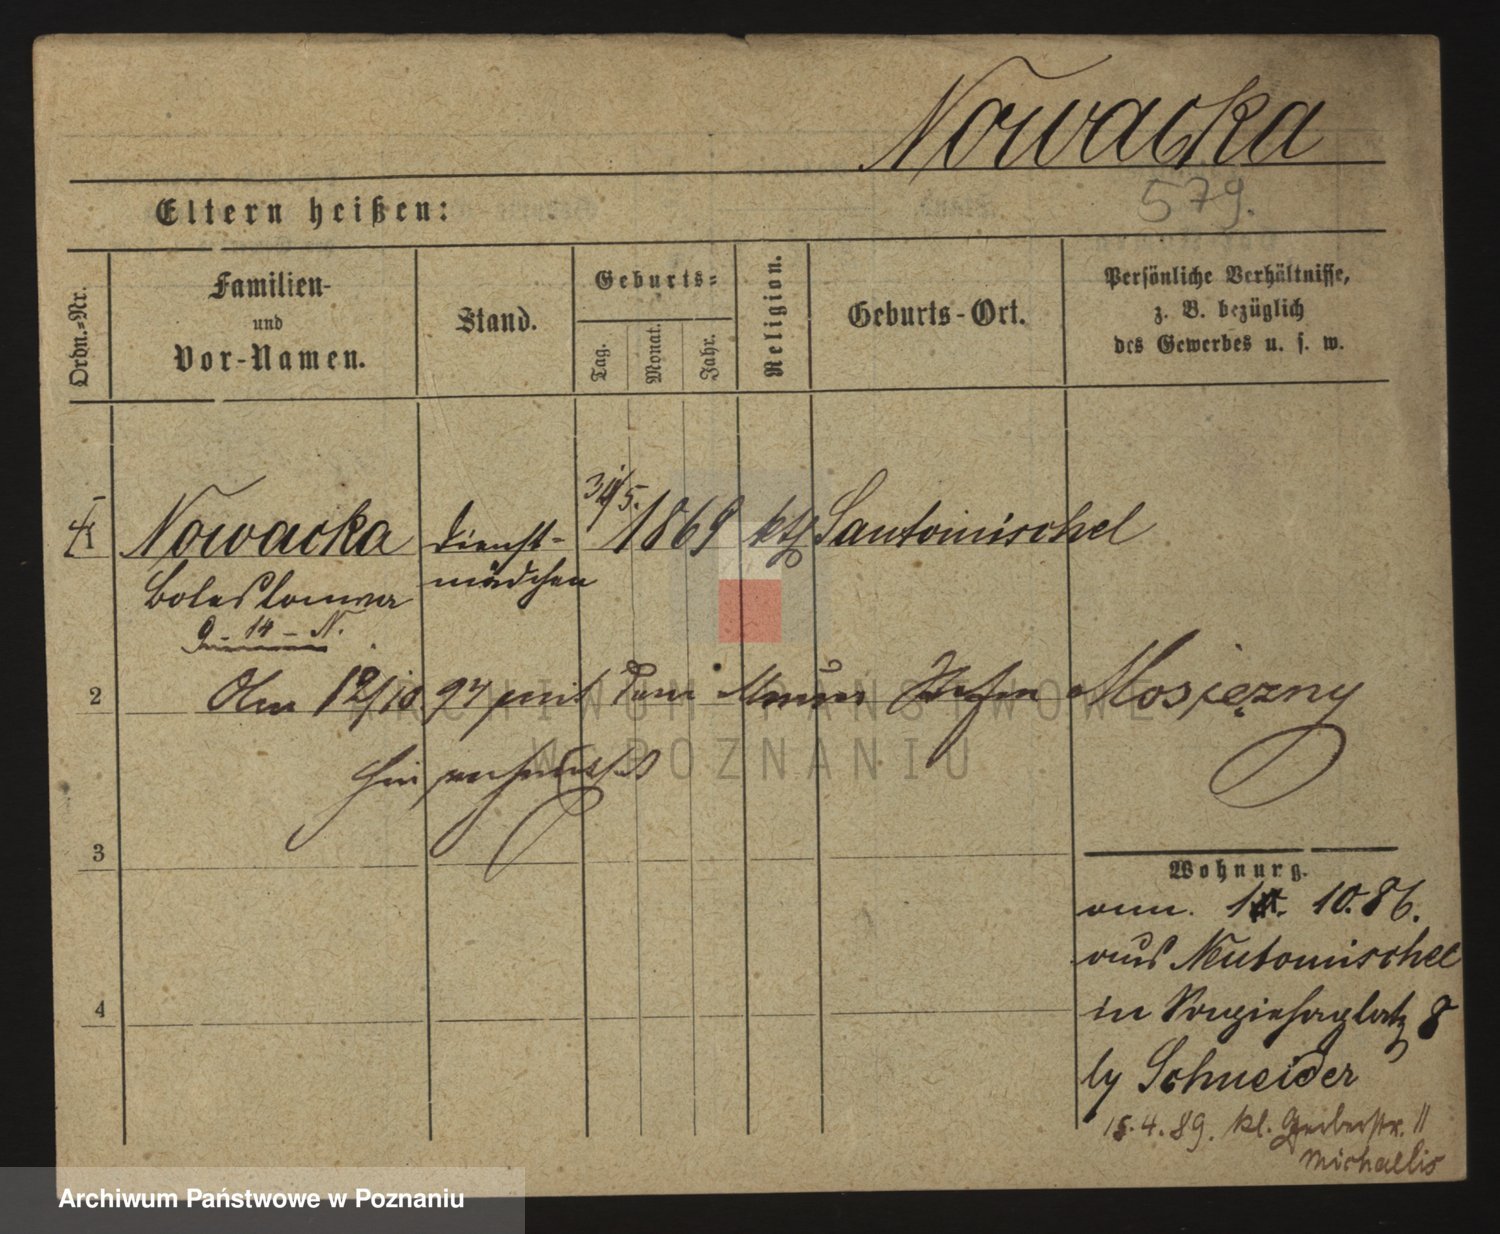 Nowacka
579.
Eltern heißen:
Ordn.-Nr.
Familien-
und
Vor-Namen.
Stand.
Geburts-
Tag.
Monat.
Jahr.
Religion.
Geburts-Ort.
Persönliche Verhältnisse,
z. B. bezüglich
des Gewerbes u. s. w.
Nowacka Dienst- 1869 kth Santomischel
mädchen
Boleslawa
9 - 14 - N.
2 Am 12/10. 97 mit dem Maurer Mosiężny
hier verheirathet
ARCHIWUM PAŃSTWOWE
W POZNANIU
3
Wohnung.
10. 86.
aus Neutomischel
4 in Sapiehaplatz 8
by Schneider
15. 4. 89. kl. Gerberstr. 11
Michaelis
Archiwum Państwowe w Poznaniu